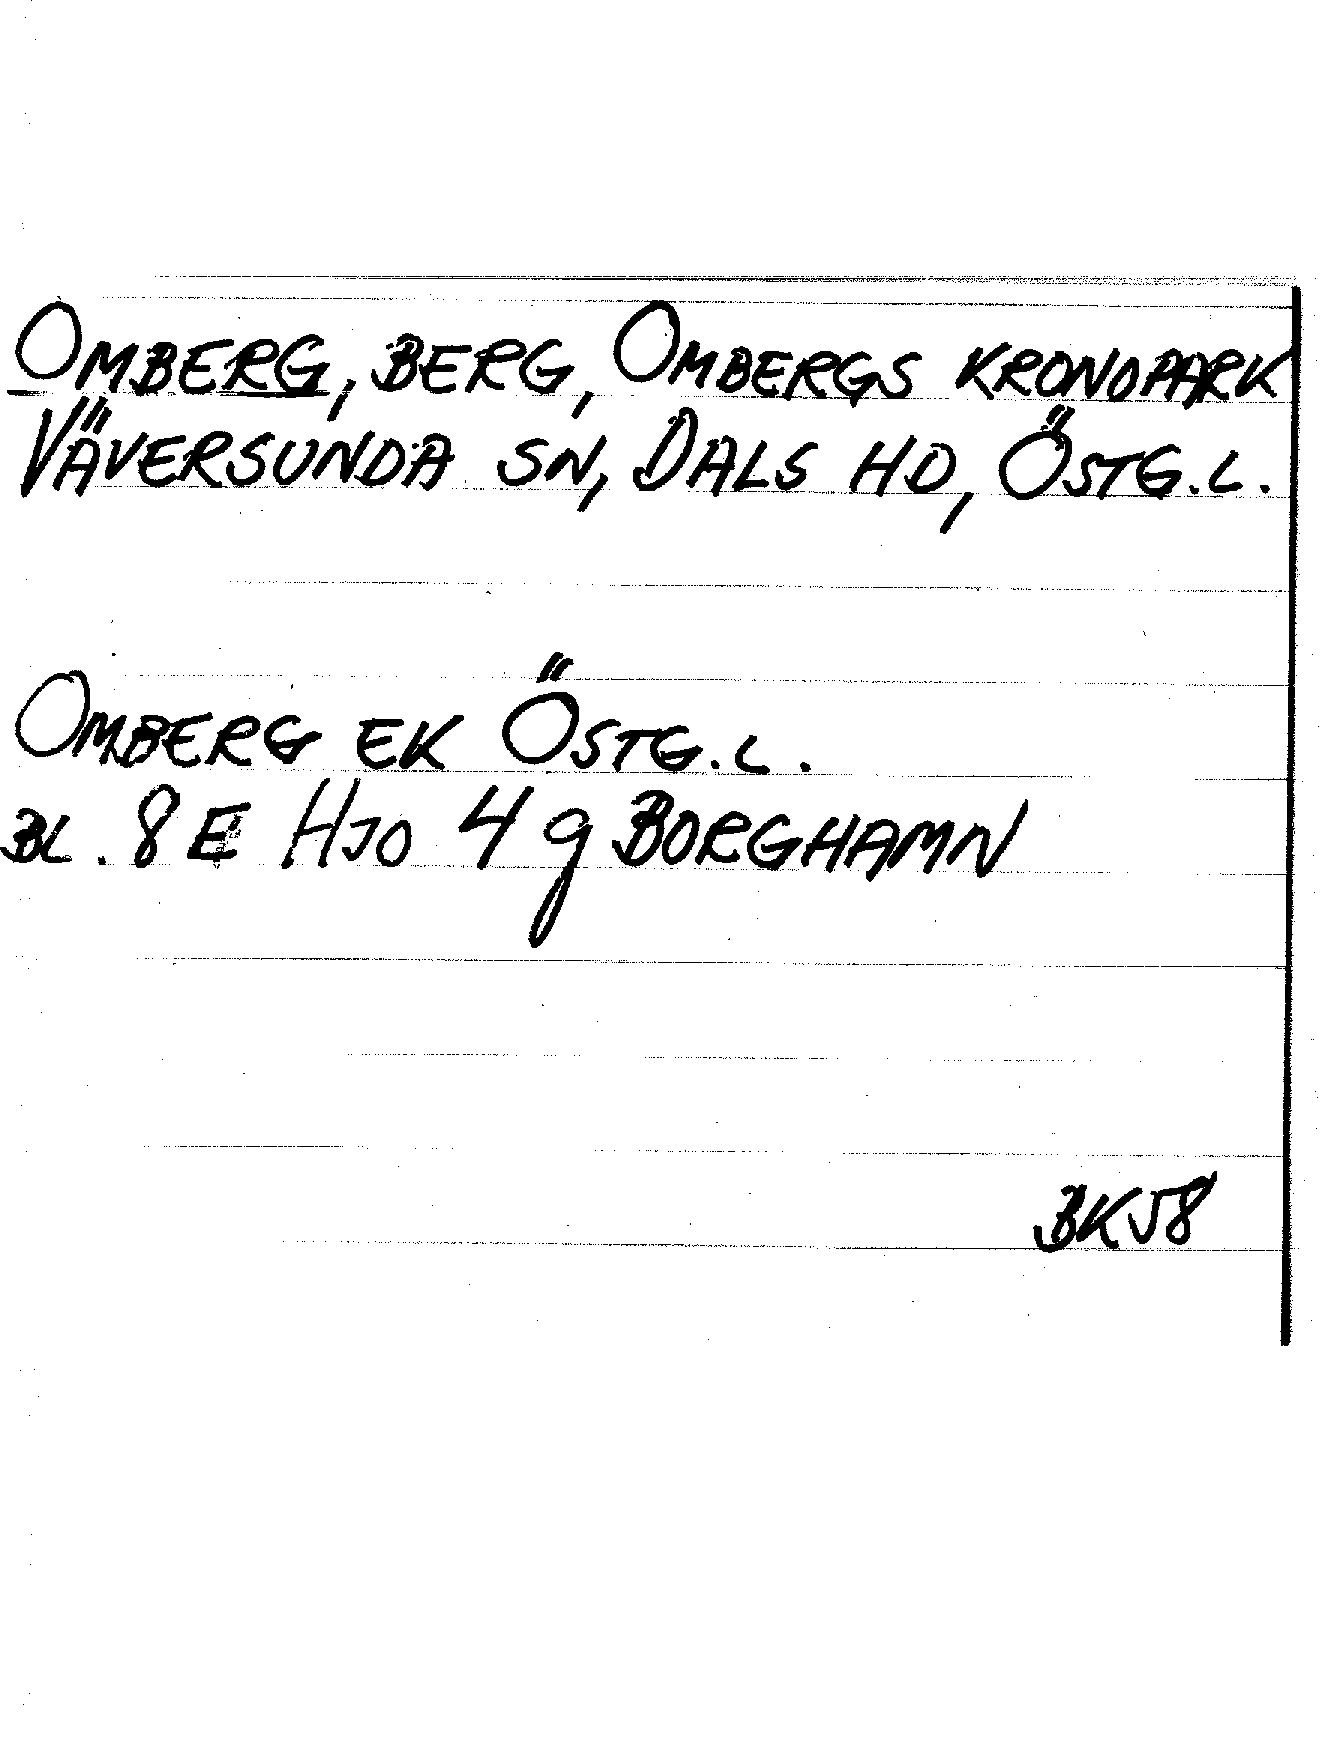 OMBERG, BERG, OMBERGS KRONOPARK
VÄVERSUNDA SN, DALS HD, ÖSTG.L.
OMBERG EK ÖSTG.L.
BL. 8E HJO 4g BORGHAMN
BK58